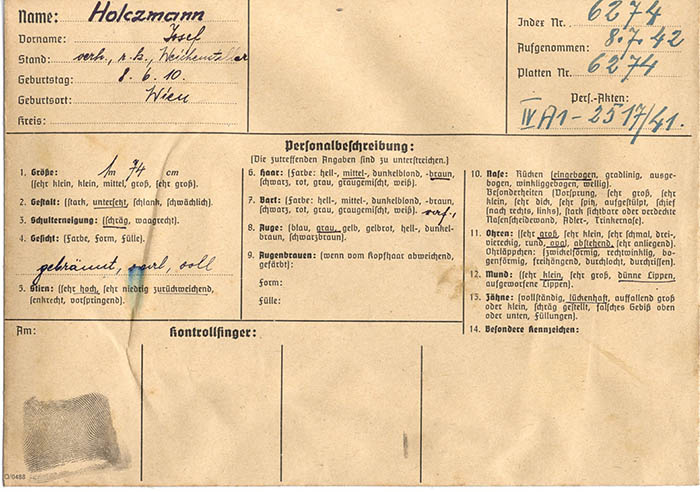 Name: Holczmann
Vorname: Josef
Stand: verh., r.k., Weichensteller
Geburtstag: 8. 6. 10.
Geburtsort: Wien
Kreis:
Index Nr. 6274
Aufgenommen: 8.7.42
Platten Nr. 6274
Pers.-Akten:
IV A1 - 2517/41.
Personalbeschreibung:
(Die zutreffenden Angaben sind zu unterstreichen.)
1. Größe: 1m 74 cm
(sehr klein, klein, mittel, groß, sehr groß).
2. Gestalt: (stark, untersetzt, schlank, schwächlich).
3. Schulterneigung: (schräg, waagrecht).
4. Gesicht: (Farbe, Form, Fülle).
gebräunt, oval, voll
5. Stirn: (sehr hoch, sehr niedrig zurückweichend,
senkrecht, vorspringend).
6. Haar: (Farbe: hell-, mittel-, dunkelblond, -braun,
schwarz, rot, grau, graugemischt, weiß).
7. Bart: (Farbe: hell-, mittel-, dunkelblond, -braun,
schwarz, rot, grau, graugemischt, weiß).
8. Auge: (blau, grau, gelb, gelbrot, hell-, dunkel-
braun, schwarzbraun).
9. Augenbrauen: (wenn vom Kopfhaar abweichend,
gefärbt):
Form:
Fülle:
10. Nase: Rücken (eingebogen, gradlinig, ausge-
bogen, winkliggebogen, wellig).
Besonderheiten (Vorsprung, sehr groß, sehr
klein, sehr dick, sehr spitz, aufgestülpt, schief
(nach rechts, links), stark sichtbare oder verdeckte
Nasenscheidewand, Adler-, Trinkernase).
11. Ohren: (sehr groß, sehr klein, sehr schmal, drei-,
viereckig, rund, oval, abstehend, sehr anliegend).
Ohrläppchen: (zwickelförmig, rechtwinklig, bo-
genförmig, freihängend, durchlocht, durchrissen).
12. Mund: (sehr klein, sehr groß, dünne Lippen,
aufgeworfene Lippen).
13. Zähne: (vollständig, lückenhaft, auffallend groß
oder klein, schräg gestellt, falsches Gebiß oben
oder unten, Füllungen).
14. Besondere Kennzeichen:
Am:
Kontrollfinger:
O/0488